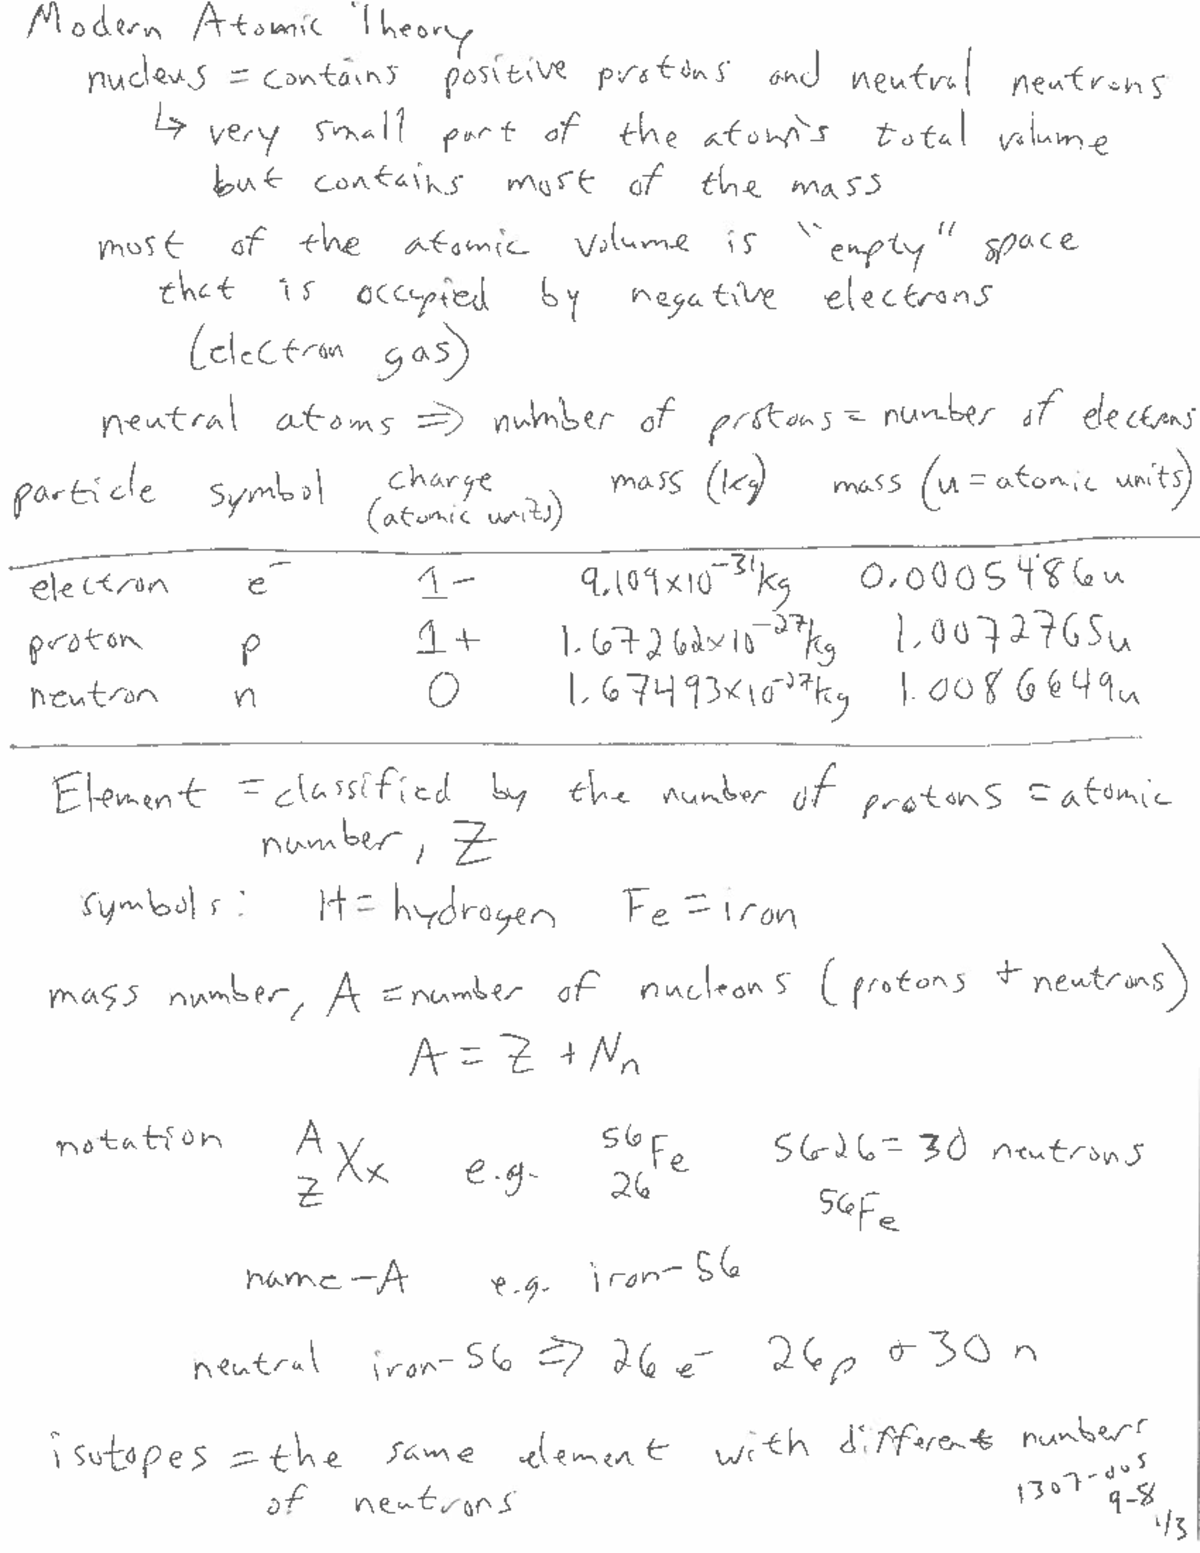 Modern Atomic Theory
nucleus = contains positive protons and neutral neutrons
↳ very small part of the atom's total volume
but contains most of the mass
most of the atomic volume is "empty" space
that is occupied by negative electrons
(electron gas)
neutral atoms ⇒ number of protons = number of electrons
particle symbol charge (atomic units) mass (kg) mass (u = atomic units)
electron e⁻ 1- 9.109x10⁻³¹kg 0.0005486u
proton p 1+ 1.67262x10⁻²⁷kg 1.0072765u
neutron n 0 1.67493x10⁻²⁷kg 1.0086649u
Element = classified by the number of protons = atomic
number, Z
symbols: H = hydrogen Fe = iron
mass number, A = number of nucleons (protons + neutrons)
A = Z + Nₙ
notation ᴬ_Z Xx e.g. ⁵⁶₂₆Fe 56-26 = 30 neutrons
⁵⁶Fe
name-A e.g. iron-56
neutral iron-56 ⇒ 26 e⁻ 26p + 30 n
isotopes = the same element with different numbers
of neutrons
1307-005
9-8
1/3